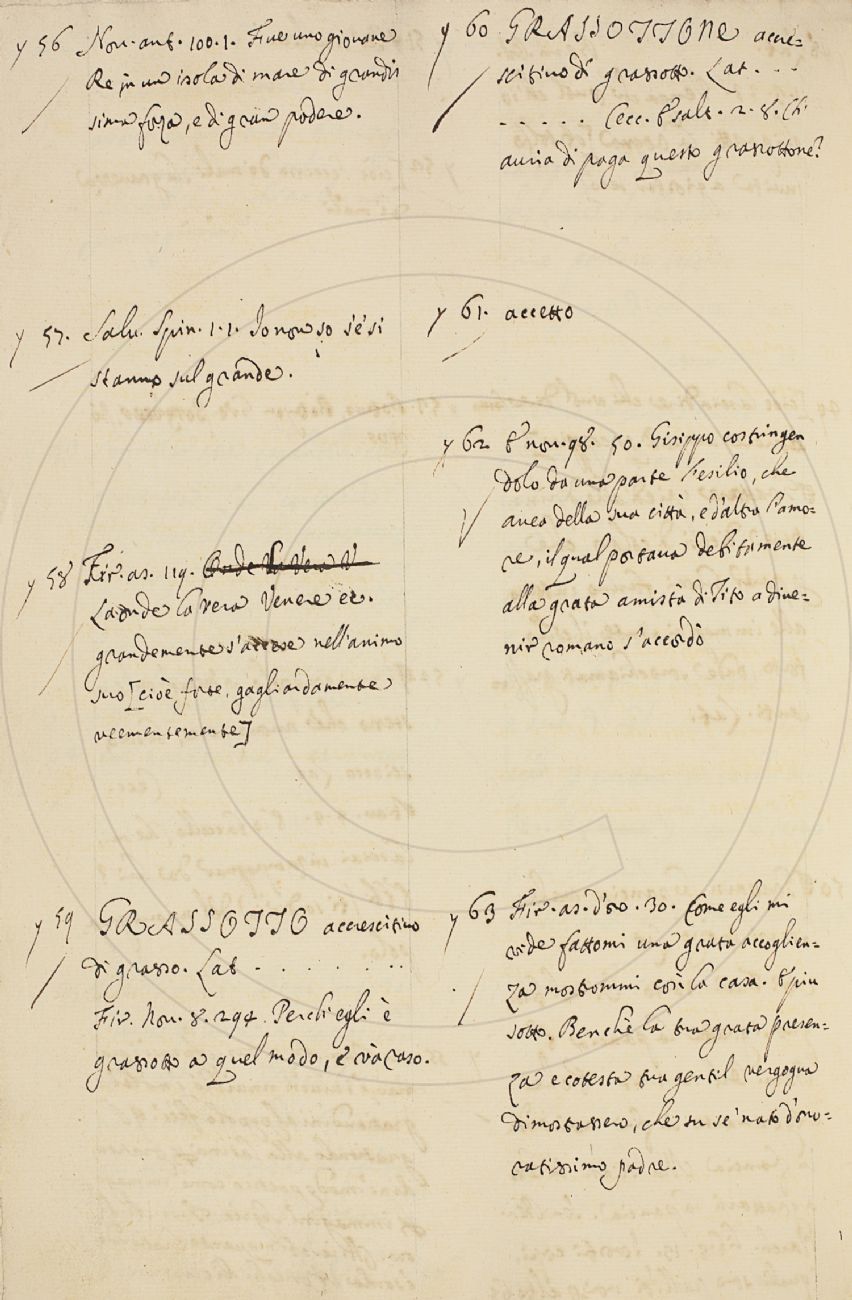 y 56 Nov. ant. 100. 1. Fue uno giovane
Re in un isola di mare di grandis
sima forza, e di gran podere.
y 57. Salv. Spin. 1. 1. Io non so s'e' si
stanno sul grande.
y 58 Fir. as. 119. Onde la vera V
Laonde la vera Venere ec.
grandemente s'accese nell'animo
suo [cioè forte, gagliardamente
veementemente]
y 59 GRASSOTTO accrescitivo
di grasso. Lat . . . . . . . .
Fir. Nov. 8. 294. Perch'egli è
grassotto a quel modo, e' va raso.
y 60 GRASSOTTONE accre=
scitivo di grassotto. Lat. . . .
. . . . . Cecc. Esalt. 2. 8. Chi
auria di paga questo grassottone?
y 61. accetto
y 62 E nov. 98. 50. Gisippo costringen
dolo da una parte l'esilio, che
avea della sua città, e d'altra l'amo=
re, il qual portava debitamente
alla grata amistà di Tito a dive=
nir romano s'accordò
y 63 Fir. as. d'oro. 30. Come egli mi
vide fattomi una grata accoglien=
za mostrommi così la casa. E piu
sotto. Benchè la tua grata presen=
za e cotesta tua gentil vergogna
dimostassero, che tu se' nato d'ono=
ratissimo padre.